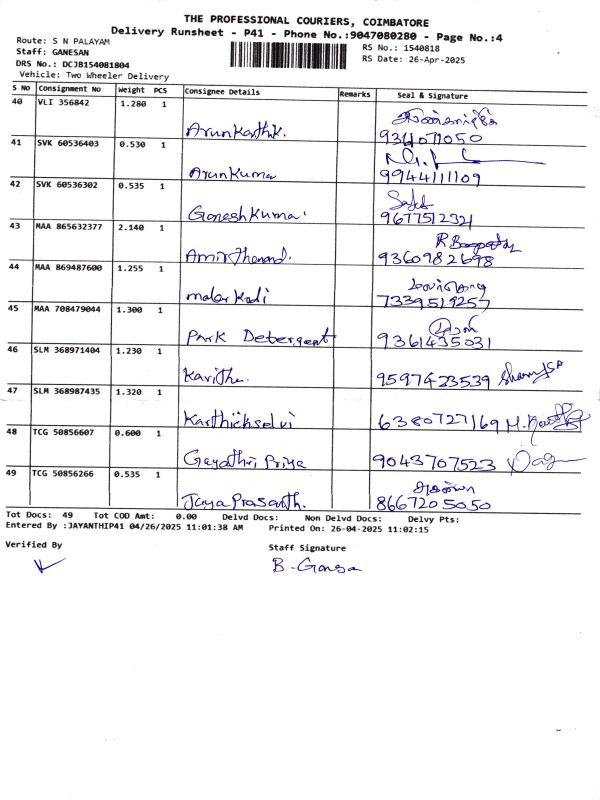 THE PROFESSIONAL COURIERS, COIMBATORE
Delivery Runsheet - P41 - Phone No.:9047080280 - Page No.:4
Route: S N PALAYAM
RS No.: 1540818
Staff: GANESAN
RS Date: 26-Apr-2025
DRS No.: DCJB154081804
Vehicle: Two Wheeler Delivery
S No Consignment No Weight PCS Consignee Details Remarks Seal & Signature
40 VLI 356842 1.280 1
ArunKarthik. 9344071050
41 SVK 60536403 0.530 1
ArunKuma 9944111109
42 SVK 60536302 0.535 1
GaneshKumar 9677512321
43 MAA 865632377 2.140 1
Amirthanand. 9360982698
44 MAA 869487600 1.255 1
malar Kodi 7339519257
45 MAA 708479044 1.300 1
Park Detergent 9361435031
46 SLM 368971404 1.230 1
Kavitha. 9597423539
47 SLM 368987435 1.320 1
Karthickselvi 6380727169
48 TCG 50856607 0.600 1
Gayathri Priya 9043707523
49 TCG 50856266 0.535 1
Jaya Prasanth. 8667205050
Tot Docs: 49 Tot COD Amt: 0.00 Delvd Docs: Non Delvd Docs: Delvy Pts:
Entered By :JAYANTHIP41 04/26/2025 11:01:38 AM Printed On: 26-04-2025 11:02:15
Verified By
Staff Signature
B. Ganesa